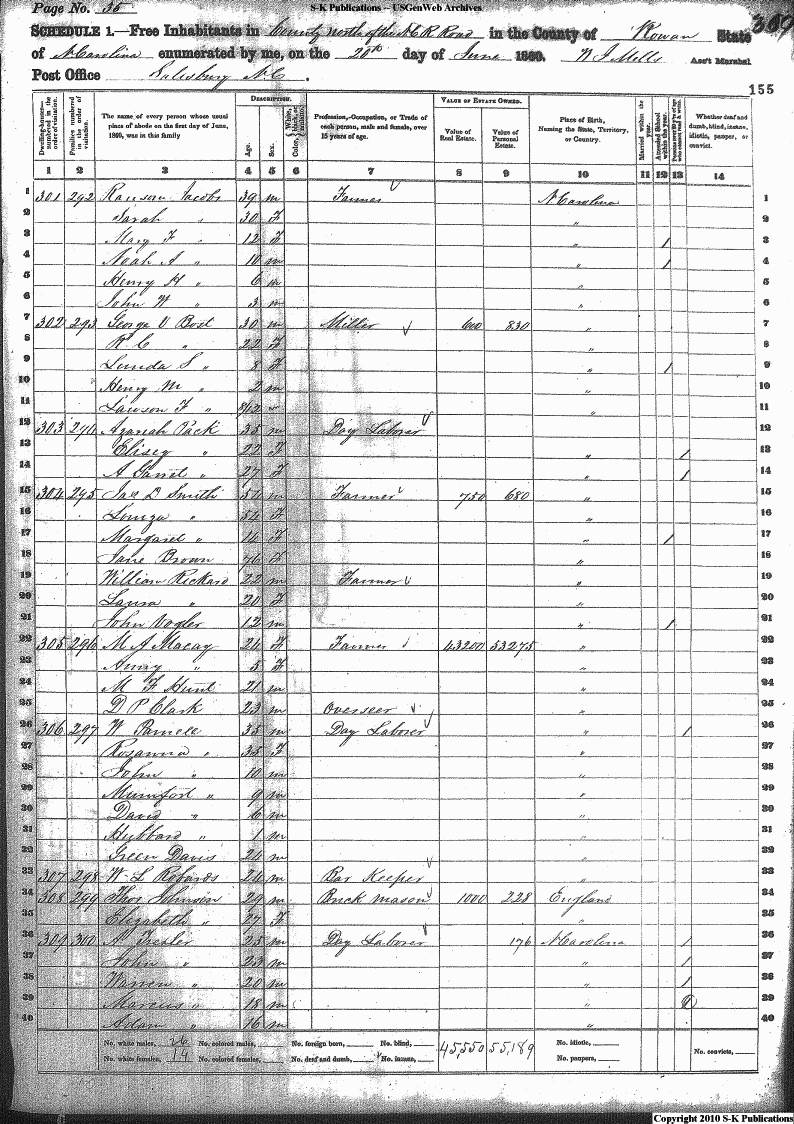 S-K Publications – USGenWeb Archives
Page No. 35
309
SCHEDULE 1.—Free Inhabitants in County North of the N.C.R. Road in the County of Rowan State
of N Carolina enumerated by me, on the 20th day of June 1860. W J Mills Ass't Marshal
Post Office Salesbury N.C.
155
Dwelling-houses—numbered in the order of visitation.
Families numbered in the order of visitation.
The name of every person whose usual place of abode on the first day of June, 1860, was in this family
DESCRIPTION.
Age.
Sex.
Color, White, black, or mulatto.
Profession, Occupation, or Trade of each person, male and female, over 15 years of age.
VALUE OF ESTATE OWNED.
Value of Real Estate.
Value of Personal Estate.
Place of Birth, Naming the State, Territory, or Country.
Married within the year.
Attended School within the year.
Whether deaf and dumb, blind, insane, idiotic, pauper, or convict.
1 2 3 4 5 6 7 8 9 10 11 12 13 14
1 301 292 Ranson Jacobs 39 m Farmer N Carolina 1
2 Sarah " 30 F " 2
3 Mary F " 12 F " 1 3
4 Noah A " 10 m " 1 4
5 Henry H " 6 m " 5
6 John W " 3 m " 6
7 302 293 George V Bost 30 m Miller 600 830 " 7
8 R C " 22 F " 8
9 Lunda S " 8 F " 1 9
10 Henry M " 2 m " 10
11 Lawson F " 8/12 " " 11
12 303 294 Pack 35 m Day Laborer " 12
13 Elisey " 22 F " 1 13
14 A " 27 F " 1 14
15 304 295 Jas D Smith 54 m Farmer 750 680 " 15
16 Louiza " 54 F " 16
17 Margaret " F " 1 17
18 Jane Brown 76 F " 18
19 William Rickard 22 m Farmer " 19
20 Laura " 20 F " 20
21 John Vogler 12 m " 1 21
22 305 296 M J Macay 24 F Farmer 43200 53275 " 22
23 Anny " 5 F " 23
24 M F Hunt 21 m " 24
25 D P Clark 23 m Overseer " 25
26 306 297 W Parnell 35 m Day Laborer " 1 26
27 Rosanna " 35 F " 27
28 John " 10 m " 28
29 Mumfort " 9 m " 29
30 David " 6 m " 30
31 Hubbard " 1 m " 31
32 Green Davis 24 m " 32
33 307 298 W L Robards 24 m Bar Keeper " 33
34 308 299 Thos Johnson 29 m Brick mason 1000 228 England 34
35 Elizabeth " 27 F " 35
36 309 300 A Trexler 25 m Day Laborer 176 N Carolina 1 36
37 John " 23 m " 1 37
38 Warren " 20 m " 1 38
39 Marcus " 18 m " 39
40 Adam " 16 m " 40
No. white males, 26 No. colored males, No. foreign born, No. blind, 45,550 55,189 No. idiotic,
No. white females, 14 No. colored females, No. deaf and dumb, No. insane, No. paupers, No. convicts,
Copyright 2010 S-K Publications